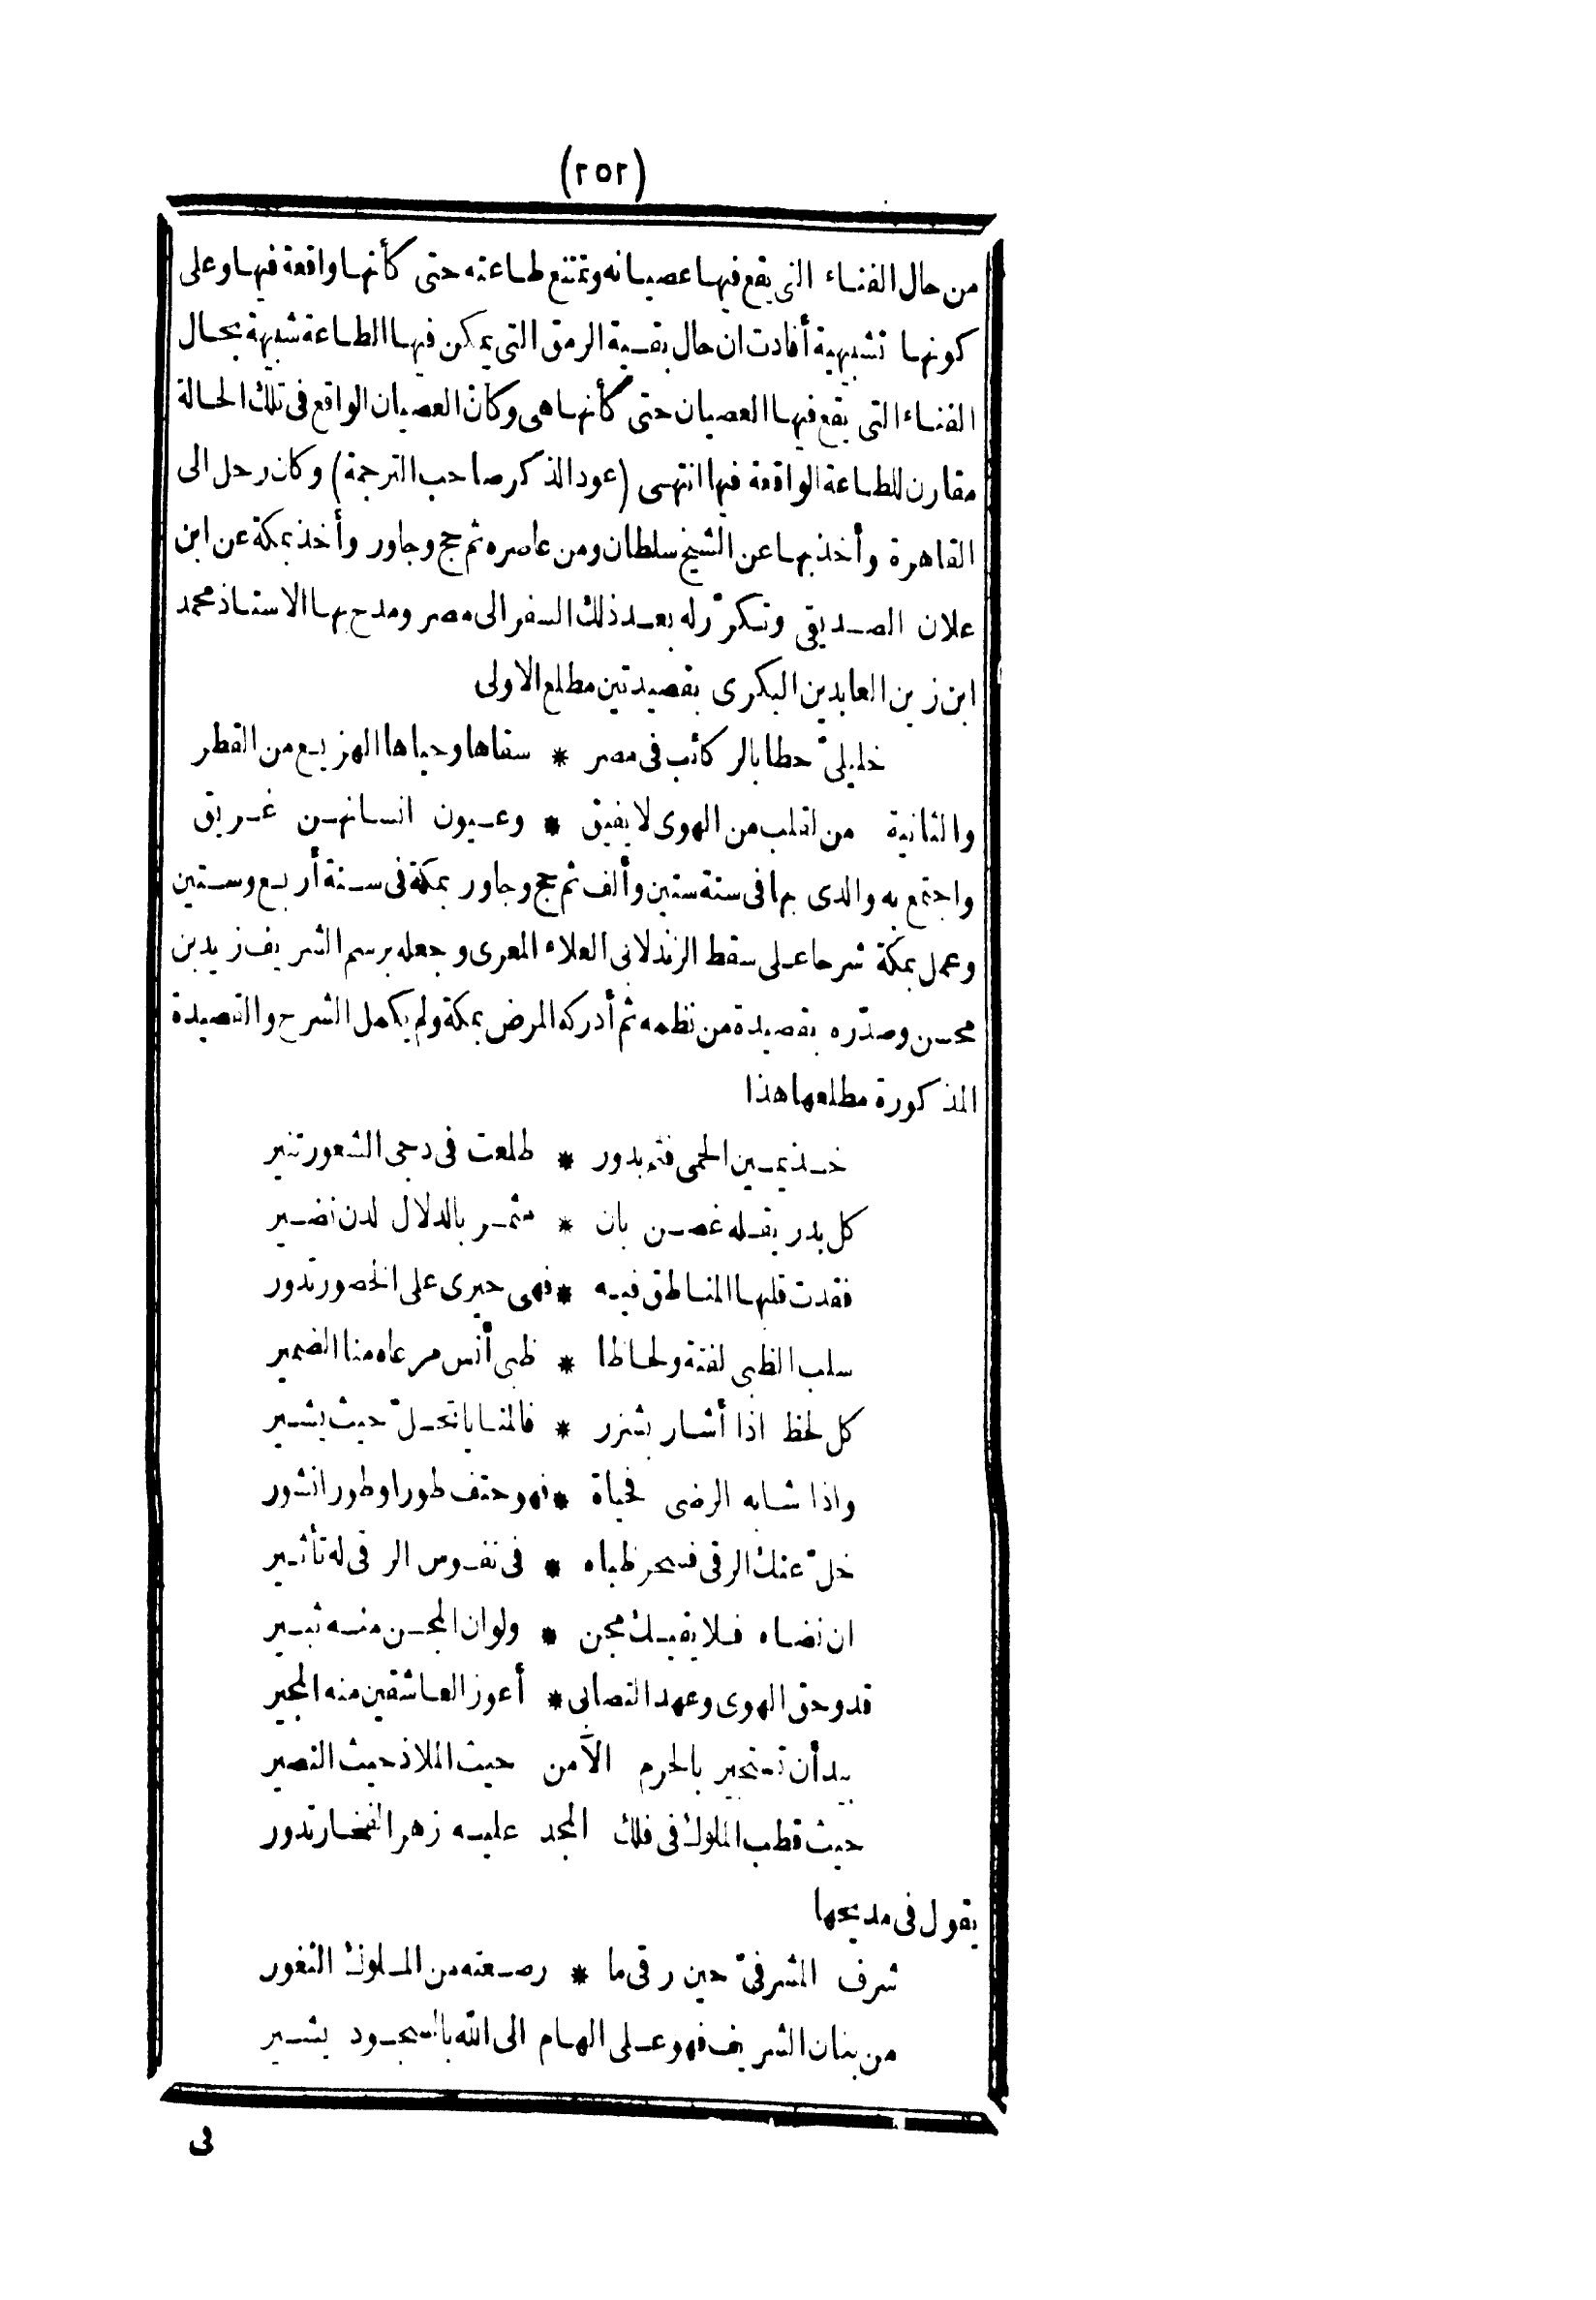 (٢٥٢)
من حال الفناء التي يقع فيها عصيانه وتمتنع طاعته حتى كأنها واقعة فيها وعلى
كونها تشبيهية أفادت ان حال بقية الرمق التي يمكن فيها الطاعة شبيهة بحال
الفناء التي يقع فيها العصيان حتى كأنها هى وكان العصيان الواقع فى تلك الحالة
مقارن للطاعة الواقعة فيها انتهى (عود الذكر صاحب الترجمة) وكان رحل الى
القاهرة وأخذ بها عن الشيخ سلطان ومن عاصره ثم حج وجاور وأخذ بمكة عن ابن
علان الصديقى وتكرّر له بعد ذلك السفر الى مصر ومدح بها الاستاذ محمد
ابن زين العابدين البكرى بقصيدتين مطلع الاولى
خليلىّ حطا بالركائب فى مصر * سقاها وحياها الهزيع من القطر
والثانية من لقلب من الهوى لا يفيق * وعيون انسانهن غريق
واجتمع به والدى بها فى سنة ستين وألف ثم حج وجاور بمكة فى سنة أربع وستين
وعمل بمكة شرحا على سقط الزند لابى العلاء المعرى وجعله برسم الشريف زيد بن
محسن وصدّره بقصيدة من نظمه ثم أدركه المرض بمكة ولم يكمل الشرح والقصيدة
المذكورة مطلعها هذا
خذ يمين الحمى فثم بدور * طلعت فى دجى الشعور تنير
كل بدر يقله غصن بان * مثمر بالدلال لدن نضير
فقدت قلبها المناطق فيه * فهى حيرى على الخصور تدور
سلب الظبى لفتة ولحاظا * ظبى أنس مرعاه منا الضمير
كل لحظ اذا أشار بشزر * فالمنايا تحلّ حيث يشير
واذا شابه الرضى فحياة * فهو حتف طورا وطورا نشور
خلّ عنك الرقى فسحر ظباه * فى نفوس الرقى له تأثير
ان نضاه فلا يقيك مجن * ولو ان المجن منه ثبير
قد وحق الهوى وعهد التصابى * أعوز العاشقين منه المجير
بيد أن تستجير بالحرم الآمن حيث الملاذ حيث النصير
حيث قطب الملوك فى فلك المجد عليه زهر الفخار تدور
يقول فى مديحها
شرف المشرفىّ حين رقى ما * رصعته من الملوك الثغور
من بنان الشريف فهو على الهام الى الله بالسجود يشير
فى